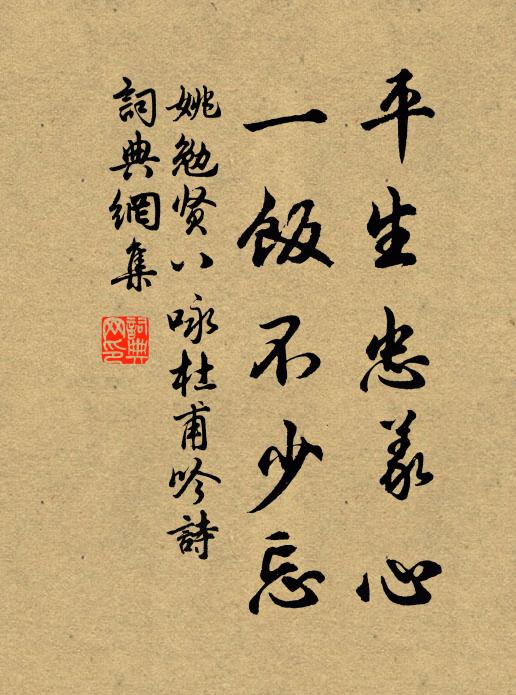 平生忠義心
一飯不少忘
姚勉贤八咏杜甫吟詩
詞典網集
詞典
网印